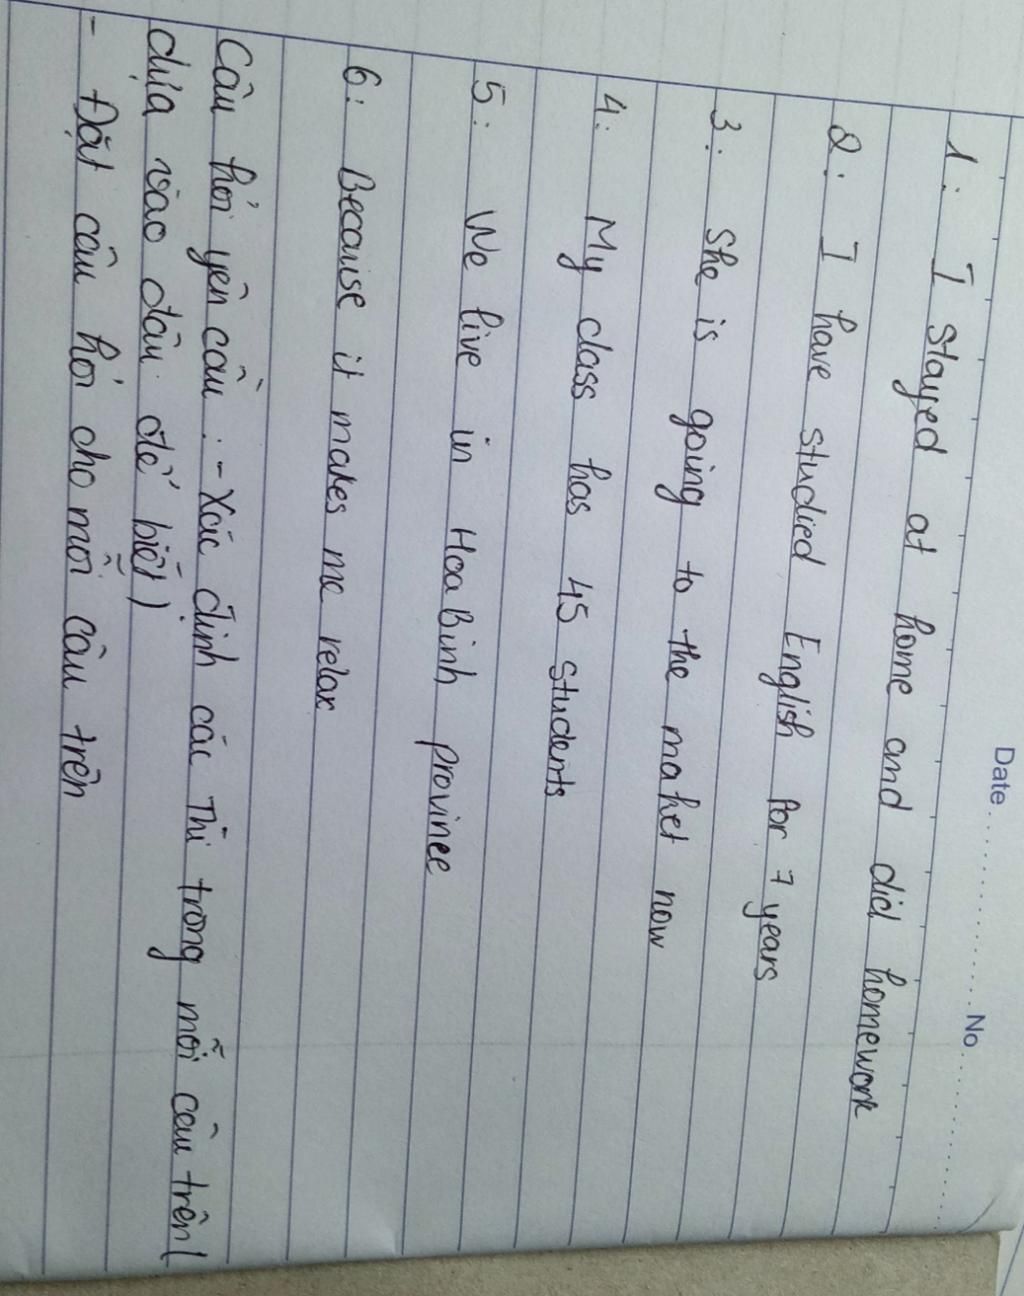 Date.................. No..................
1: I stayed at home and did homework
2: I have studied English for 7 years
3: She is going to the maket now
4: My class has 45 students
5: We live in Hoa Binh provinee
6: Because it makes me relax
Câu hỏi yêu cầu: - Xác định các Thì trong mỗi câu trên (
dựa vào đâu để biết)
- Đặt câu hỏi cho mỗi câu trên